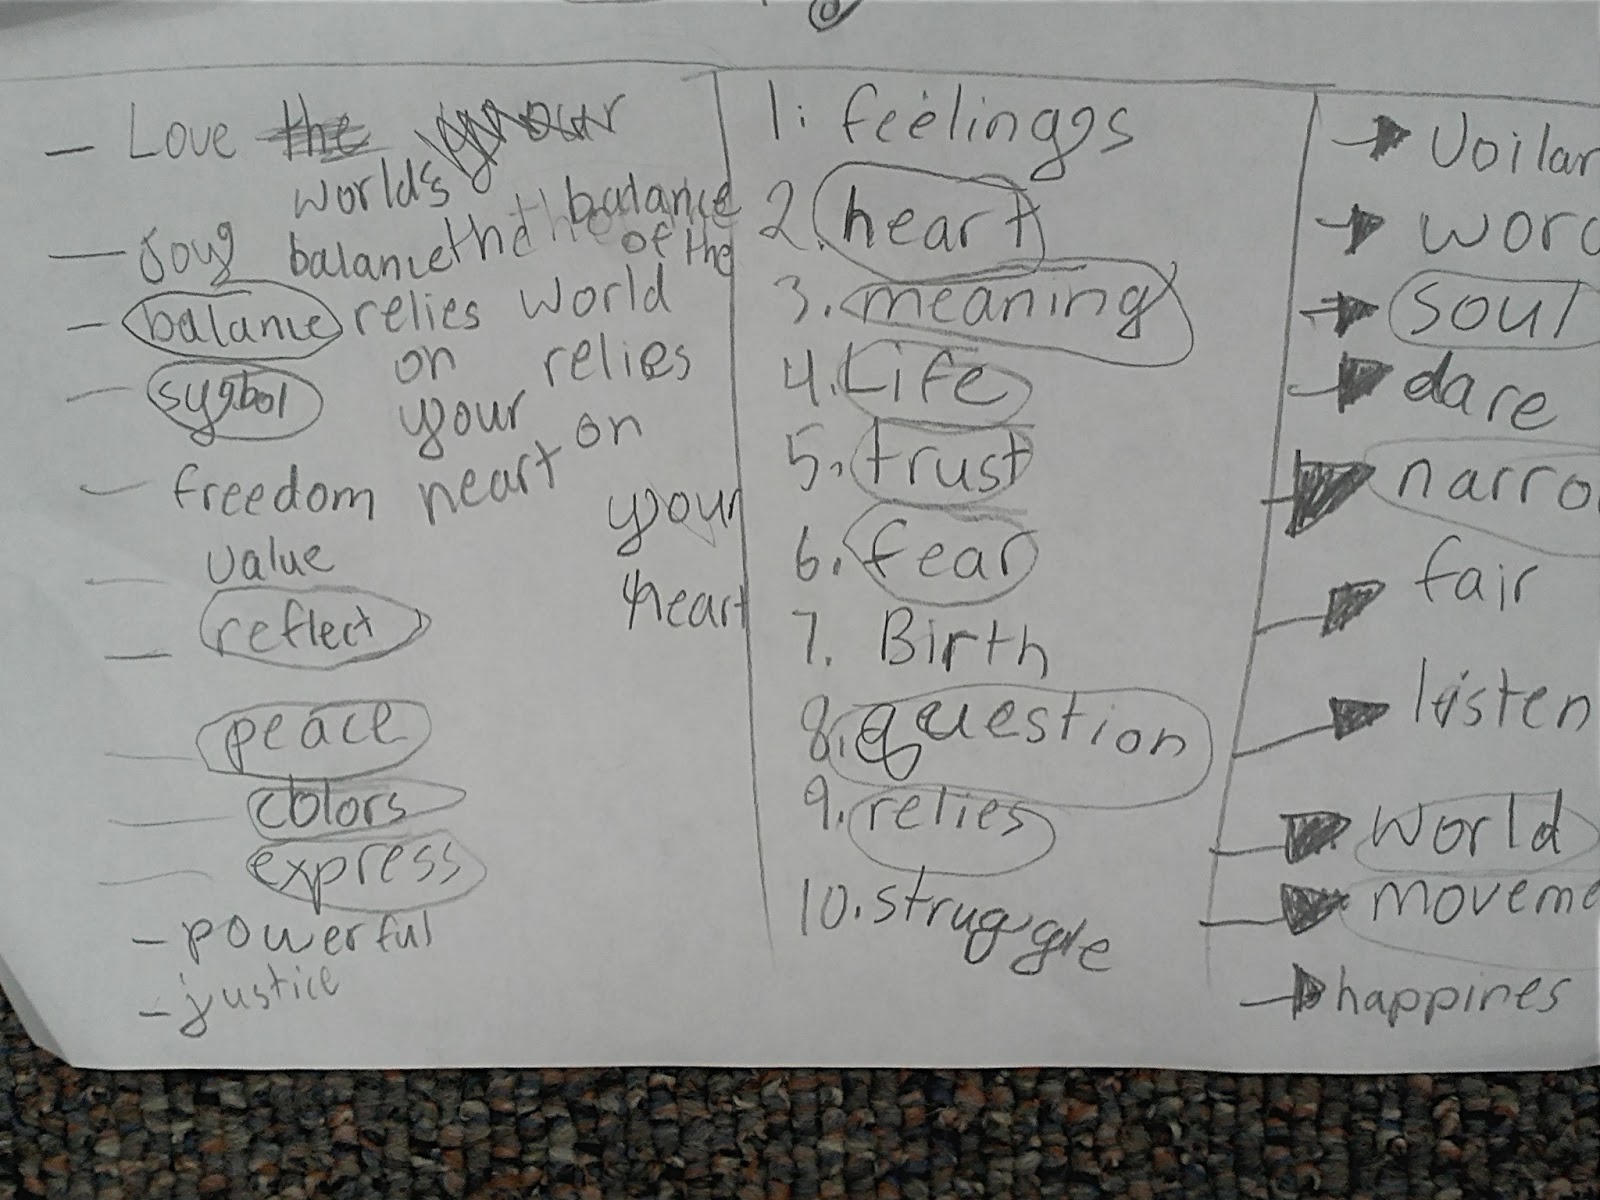 - Love the your
worlds
- joy balance the the balance of the
- balance relies world
- sygbol on relies
your on
- freedom heart
your
- value
heart
- reflect
- peace
- colors
- express
- powerful
- justice
1. feelings
2. heart
3. meaning
4. Life
5. trust
6. fear
7. Birth
8. question
9. relies
10. struggle
→ Voilan
→ word
→ soul
→ dare
→ narro
→ fair
→ listen
→ world
→ moveme
→ happines